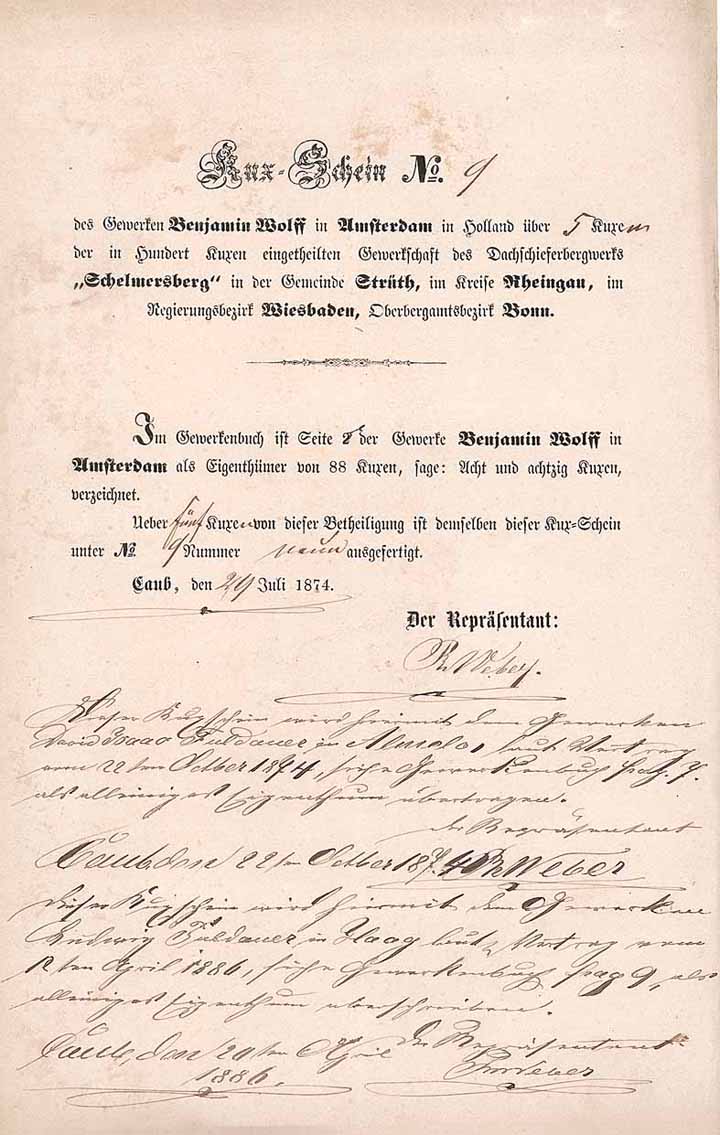 Kux-Schein No. 9
des Gewerken Benjamin Wolff in Amsterdam in Holland über 5 Kuxen
der in Hundert Kuxen eingetheilten Gewerkschaft des Dachschieferbergwerks
„Schelmersberg" in der Gemeinde Strüth, im Kreise Rheingau, im
Regierungsbezirk Wiesbaden, Oberbergamtsbezirk Bonn.
Im Gewerkenbuch ist Seite der Gewerke Benjamin Wolff in
Amsterdam als Eigenthümer von 88 Kuxen, sage: Acht und achtzig Kuxen,
verzeichnet.
Ueber fünf Kuxen von dieser Betheiligung ist demselben dieser Kux-Schein
unter No 9 Nummer neun ausgefertigt.
Caub, den 29 Juli 1874.
Der Repräsentant:
Ph Weber.
Dieser Kuxschein wird hiermit dem Gewerken
David Isaac Fuldauer zu Almelo, laut Vertrag
vom 22ten Octber 1874, siehe Gewerkenbuch pag. 7.
als alleiniges Eigenthum übertragen.
der Repräsentant
Caub, den 22ten Octber 1874. Ph Weber
Dieser Kuxschein wird hiermit dem Gewerken
Ludwig Fuldauer in Haag laut Vertrag vom
12ten April 1886, siehe Gewerkenbuch pag 9, als
alleiniges Eigenthum überschrieben.
Caub, den 20ten April Der Repräsentant
1886. Ph Weber